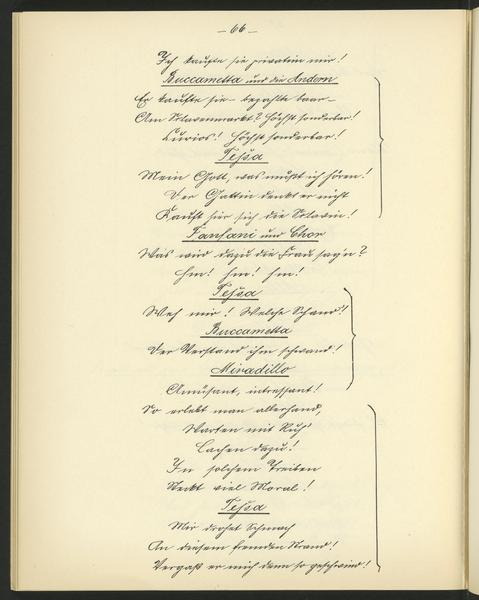 — 66 —
Ich kaufte sie privatim mir!
Buccametta und die Andern
Er kaufte sie – bezahlte baar –
Am Sclavenmarkt? Höchst sonderbar!
Curios! Höchst sonderbar!
Tessa
Mein Gott, was mußt ich hören!
Der Gattin denkt er nicht
Kauft hier sich die Sclavin!
Fanfani und Chor
Was wird dazu die Frau sag'n?
Hm! hm! hm!
Tessa
Weh mir! Welche Schand!
Buccametta
Der Verstand ihm schwand!
Miradillo
Amüsant, intressant!
So erlebt man allerhand,
Warten mit Ruh'
Lachen dazu!
In solchem Treiben
Steckt viel Moral!
Tessa
Mir drohet Schmach
An diesem fremden Strand!
Vergaß er mich denn so geschwind!